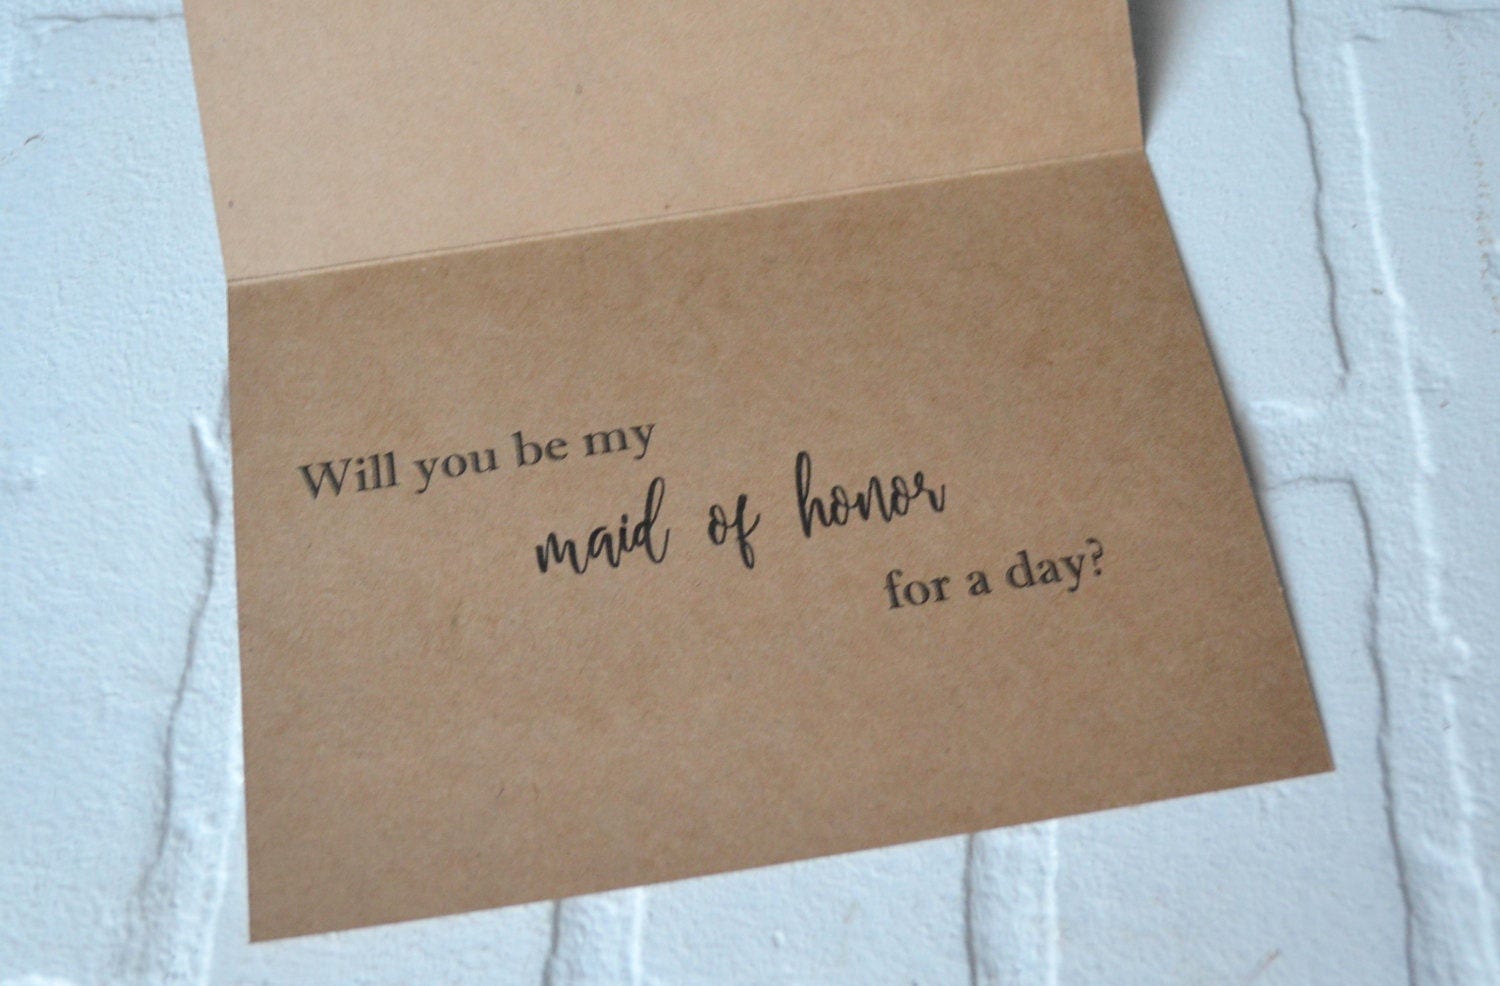 Will you be my
maid of honor
for a day?